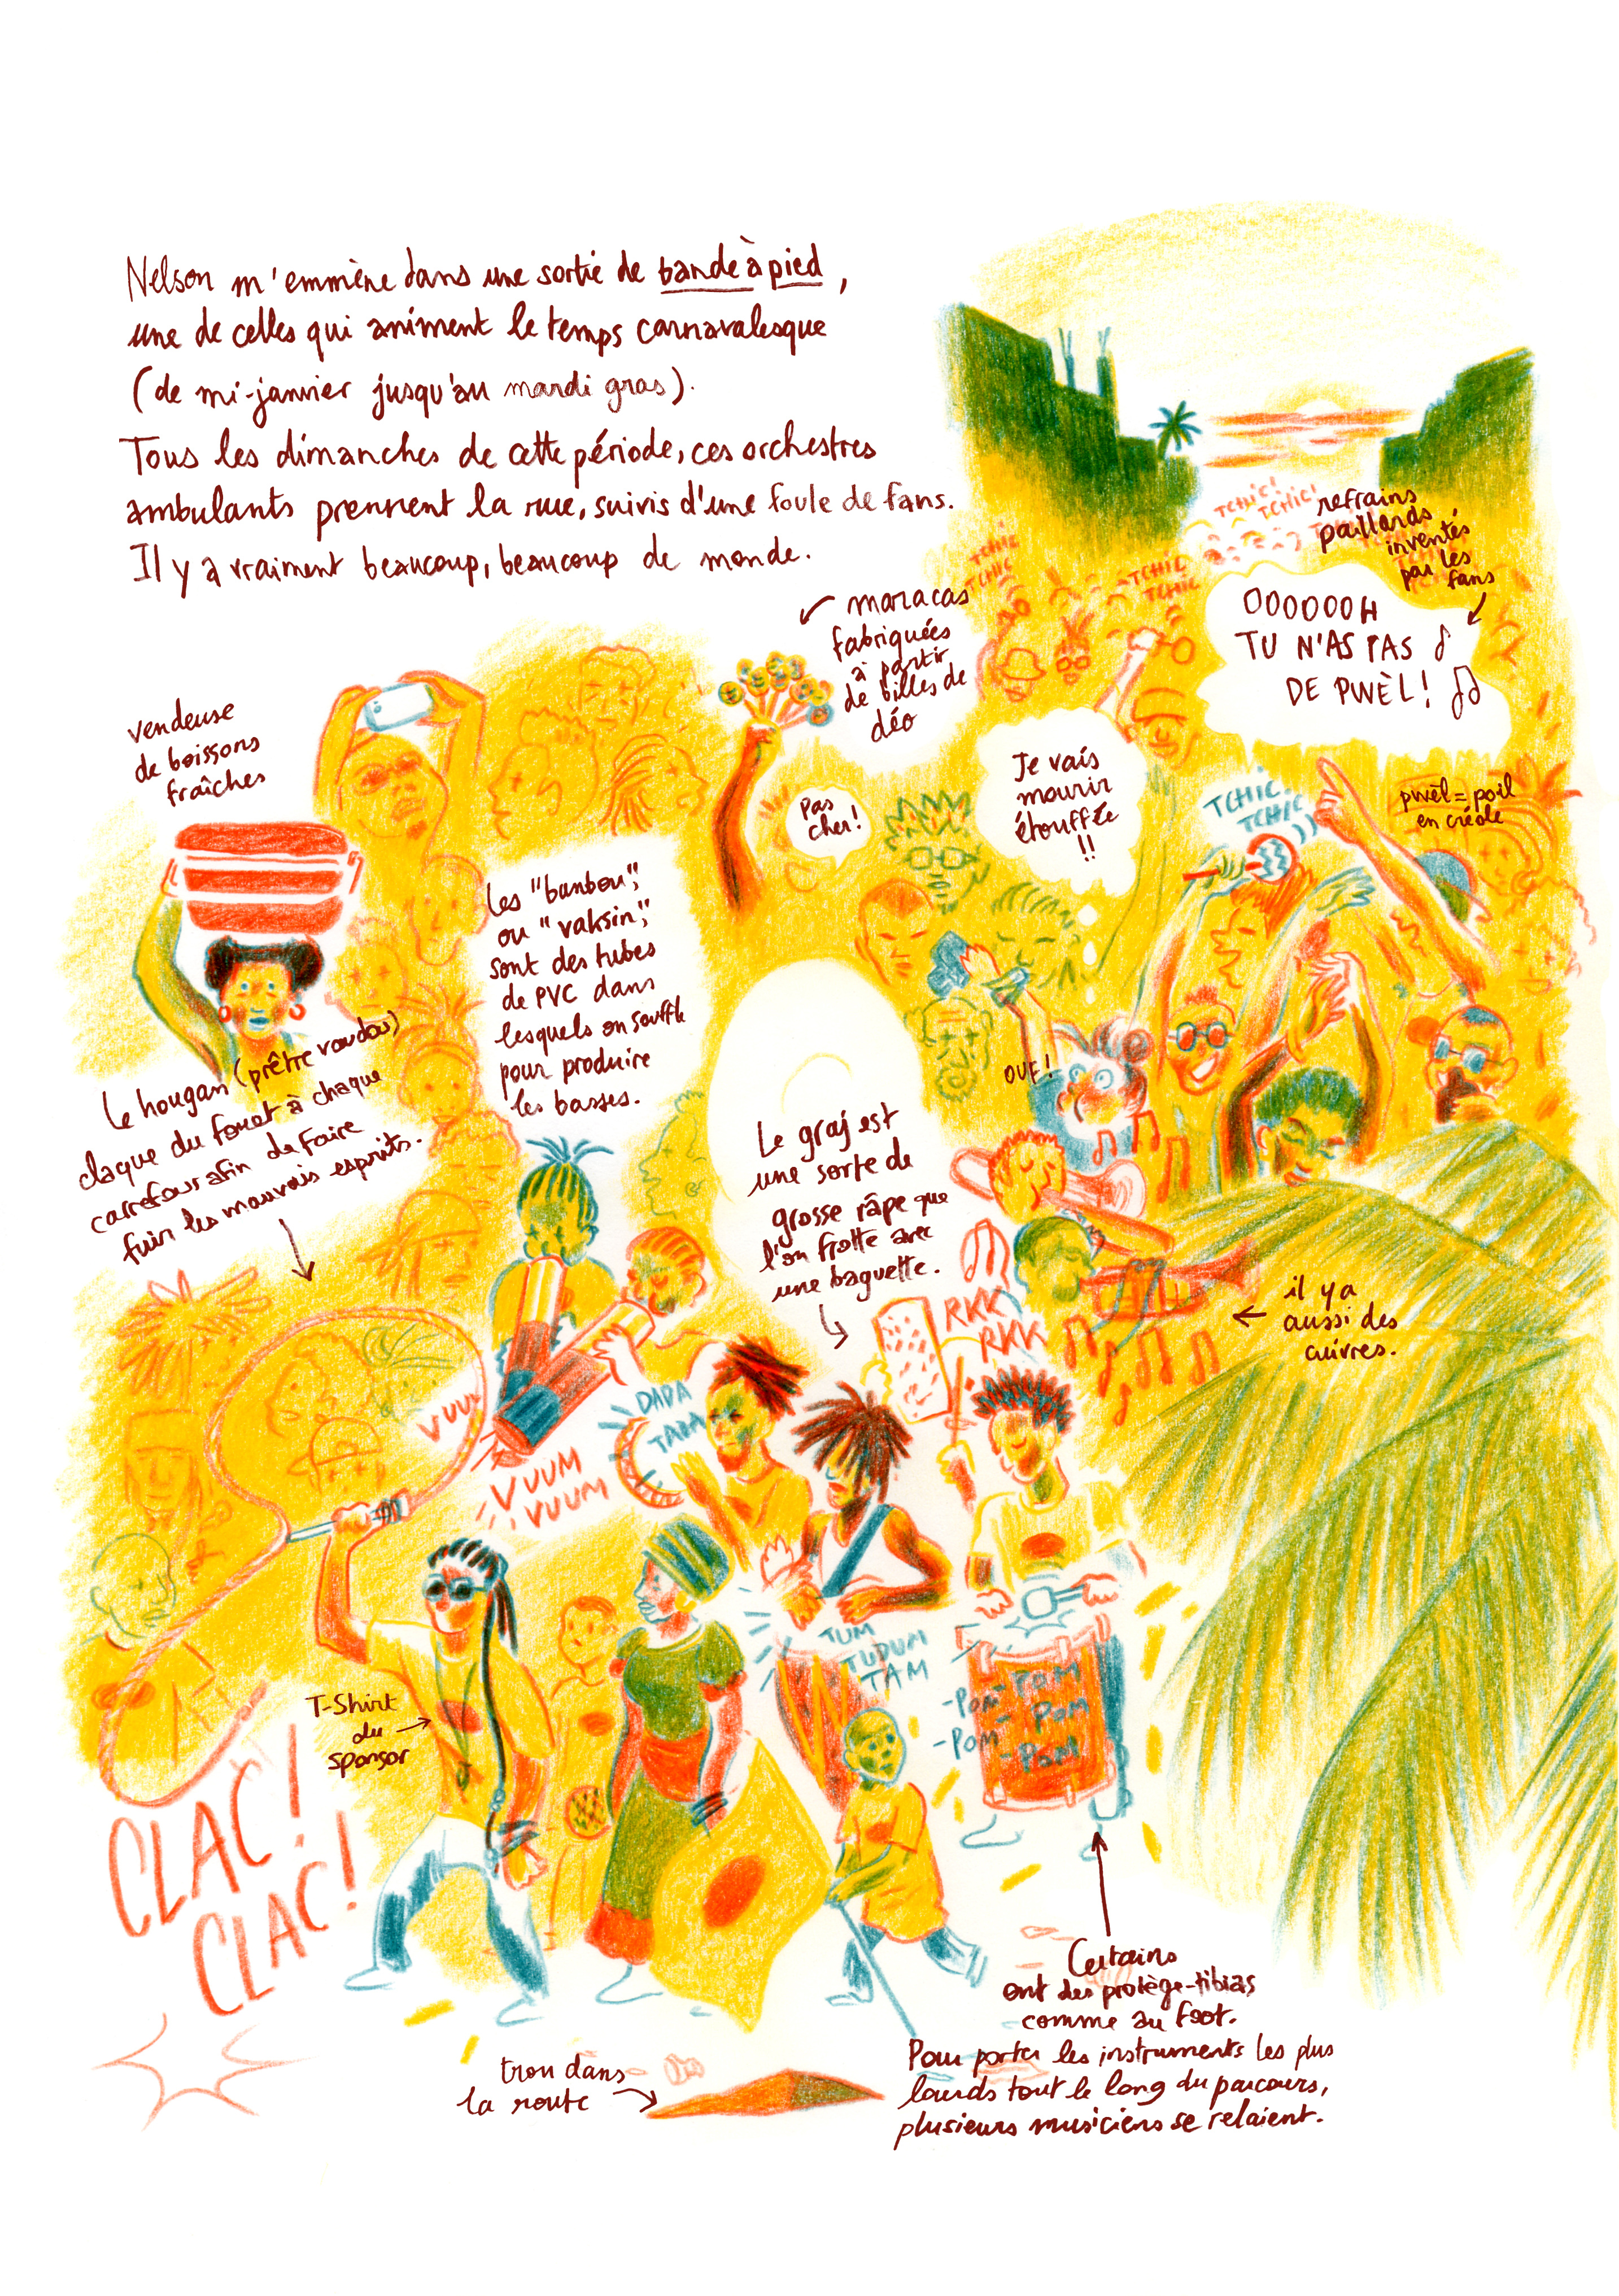 Nelson m'emmène dans une sortie de bande à pied,
une de celles qui animent le temps carnavalesque
(de mi-janvier jusqu'au mardi gras).
Tous les dimanches de cette période, ces orchestres
ambulants prennent la rue, suivis d'une foule de fans.
Il y a vraiment beaucoup, beaucoup de monde.
TCHIC!
TCHIC!
refrains
paillards
inventés
par les
fans
TCHIC
TCHIC
TCHIC
TCHIC
OOOOOOH
TU N'AS PAS
DE PWÈL!
maracas
fabriquées
à partir
de billes de
déo
vendeuse
de boissons
fraîches
Pas
cher!
Je vais
mourir
étouffée
!!
TCHIC
TCHIC
pwèl = poil
en créole
Les "banbou",
ou "vaksin",
sont des tubes
de PVC dans
lesquels on souffle
pour produire
les basses.
OUF!
Le hougan (prêtre vaudou)
claque du fouet à chaque
carrefour afin de faire
fuir les mauvais esprits.
Le graj est
une sorte de
grosse râpe que
l'on frotte avec
une baguette.
RKK
RKK
il y a
aussi des
cuivres.
VUUM
VUUM
DADA
TADA
TUM
TUDUM
TAM
-POM-POM
- POM
-POM
-POM
T-Shirt
du
sponsor
CLAC!
CLAC!
Certains
ont des protège-tibias
comme au foot.
Pour porter les instruments les plus
lourds tout le long du parcours,
plusieurs musiciens se relaient.
trou dans
la route